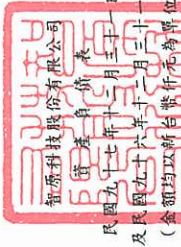 智原科技股份有限公司
資產負債表
民國九十七年十二月三十一
及民國九十六年十二月三十一
(金額均以新台幣仟元為單位